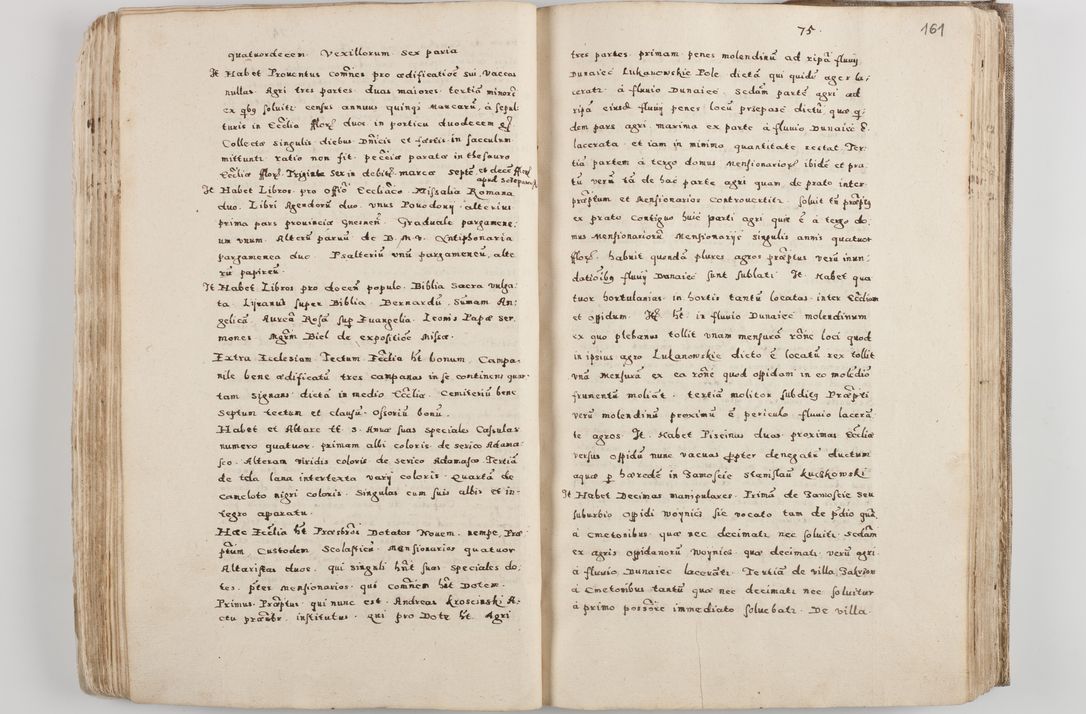 quatuordecem Vexillorum Sex paria
It Habet Prouentus com̃nes pro ædificatiōe sui. Vaccas
nullas. Agri tres partes. duas maiores tertiã minorẽ
ex qbꝰ soluitꝛ census annuus quinqꝫ Marcarũ, à sepul
turis in Ecclia fflorꝫ duo in porticu duodecem gꝫ
Collecta singulis diebus Dñicis et festis in sacculum
mittuntꝛ ratio non fit. pecūia parata in thesauro
Eccliæ fflorꝫ Triginta Sex in debitꝫ marcæ septẽ et decẽ fflorꝫ
apud
It Habet Libros pro offõ Eccliaco. Missalia Romana
duo. Libri Agendorũ duo. vnus Powodowy. alterius
prima pars prouinciæ Gnesneñ. Graduale pargamene,
um vnum. Alterũ paruũ de B. M. V. Antiphonaria
pargamenea duo. Psalteriũ vnũ pargameneũ, alte
rũ papireũ.
It Habet Libros pro docen̄ populo. Biblia Sacra vulga,
ta. Lyranus super Biblia. Bernardũ, Sũmam An,
gelicã, Aureã Rosã sup Euangelia. Leonis Papæ ser
mones. Mgrm̃ Biel de expositiōe Missæ.
Extra Ecclesiam. Tectum Eccliæ ht bonum. Campa,
nile bene ædificatũ tres campanas in se continens quar
tam signans dictã in medio Eccliæ. Cemiteriũ bene
septum tectum et clausũ. Ossoriũ bonũ.
Habet et Altare tt S. Annæ suas speciales Casulas
numero quatuor. primam albi coloris de serico Adama,
sco. Alteram viridis coloris de serico Adamasco Tertiã
de tela lana intertexta varij coloris. Quartã de
cameloto nigri coloris. Singulas cum suis albis et in,
tegro aparatu.
Hæc Ecclia ht Præsbr̃os Dotatos Nouem. nempe, Præ
ptum Custodem Scolasticũ Mansionarios quatuor
Altaristas duos. qui singuli hñt suas speciales do,
tes. pter Mensionarios. qui com̃nem hñt Dotem.
Primus Præptus qui nunc est. Andreas Kroscinski A,
ctu præsbr. institutus. qui pro Dote ht. Agri
75.
161
tres partes primam penes molendinũ ad ripã fluuij
Dunaiec Lukanowskie Pole dictã qui quidẽ ager la,
ceratꝛ à fluuio Dunaiec. Secdam partẽ agri ad
ripã eiusd̃ fluuij penes locũ przespase dictũ quæ q;
dem pars agri. maxima ex parte à fluuio Dunaiec ẽ
lacerata. et iam in minimo quantitate restat. Ter,
tiã partem à tergo domus Mensionariorꝫ ibidẽ et pra,
tũ verũ tã de hac parte agri quam de prato inter
præptum et Mensionarios controuertitꝛ. soluit tñ præptꝰ
ex prato contiguo huic parti agri quæ ẽ à tergo do,
mus Mensionariorũ Mensionarijs singulis annis quatuor
fflorꝫ. habuit quondã plures agros præptus verũ inun,
datiōibꝰ fluuij Dunaiec sunt sublati. It. Habet qua
tuor hortulanias in hortis tantũ locatas inter Eccliam
et oppidum. It. ht in fluuio Dunaiec molendinum
ex quo plebanus tollit vnam mensurã rōne loci quod
in ipsius agro Lukanowskie dicto ẽ locatũ rex tollit
vnã mensurã ex ea rōne quod oppidani in eo molēdio
frumentũ moliãt. tertiã molitor subditꝰ Præpti
verũ molendinũ proximũ ẽ periculo. fluuio lacerã,
te agros. It. Habet Piscinas duas proximas Eccliæ
versus oppidũ nunc vacuas ppter denegatũ ductum
aquæ p hæredẽ in Zamoscie Stanislaũ Kuczkowski
It Habet Decimas manipulares. Primã de Zamoscie seu
suburbio oppidi Woynicz sic vocato tam de pdio quã
à Cmetonibus quæ nec decimatꝛ nec soluitꝛ Secdam
ex agris oppidanorũ Woynicz quæ decimatꝛ. verũ agri
à fluuio Dunaiec laceratꝛ. Tertiã de villa
à Cmetonibus tantũ quæ nec decimatꝛ nec soluitur
à primo possōre immediato soluebatꝛ. De villa